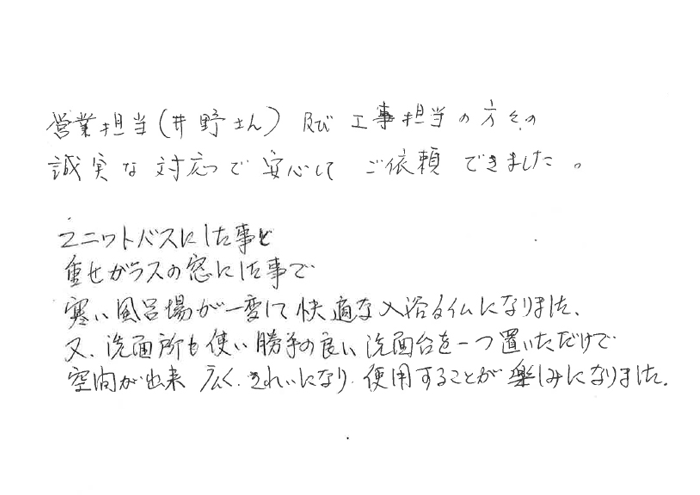 営業担当(井野さん)及び工事担当の方々の
誠実な対応で安心して ご依頼できました。
ユニットバスにした事と
重せガラスの窓にした事で
寒い風呂場が一変して快適な入浴タイムになりました。
又、洗面所も使い勝手の良い洗面台を一つ置いただけで
空間が出来 広く、きれいになり、使用することが楽しみになりました。